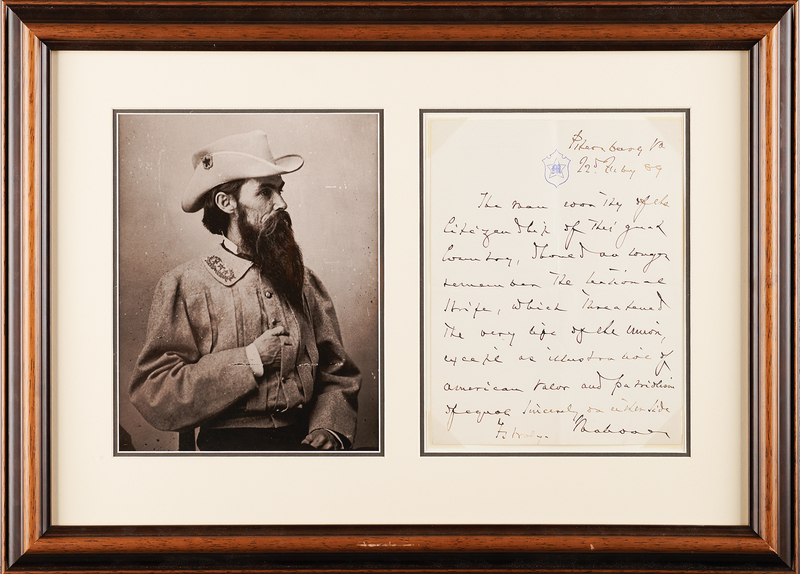 Petersburg Va
22d July 89
The man worthy of the
Citizenship of this great
Country, should no longer
remember the National
Strife, which threatened
the very life of the Union,
except as illustrative of
American valor and patriotism
of equal sincerity on either side
Mahone